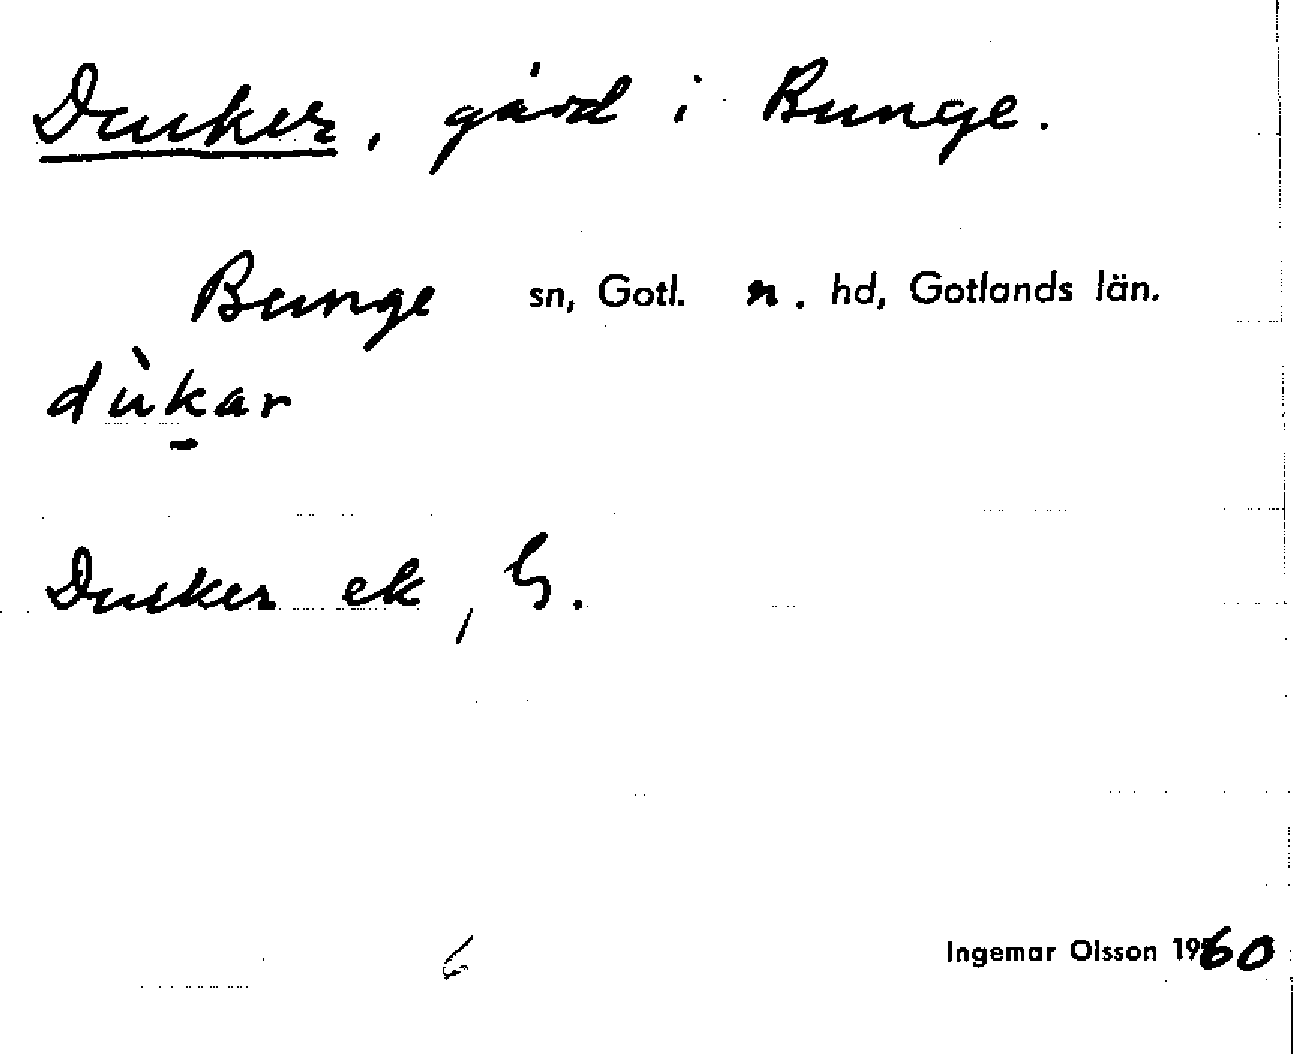 Ducker, gård i Bunge.
Bunge sn, Gotl. n. hd, Gotlands län.
dùkar
Ducker ek, G.
6
Ingemar Olsson 1960